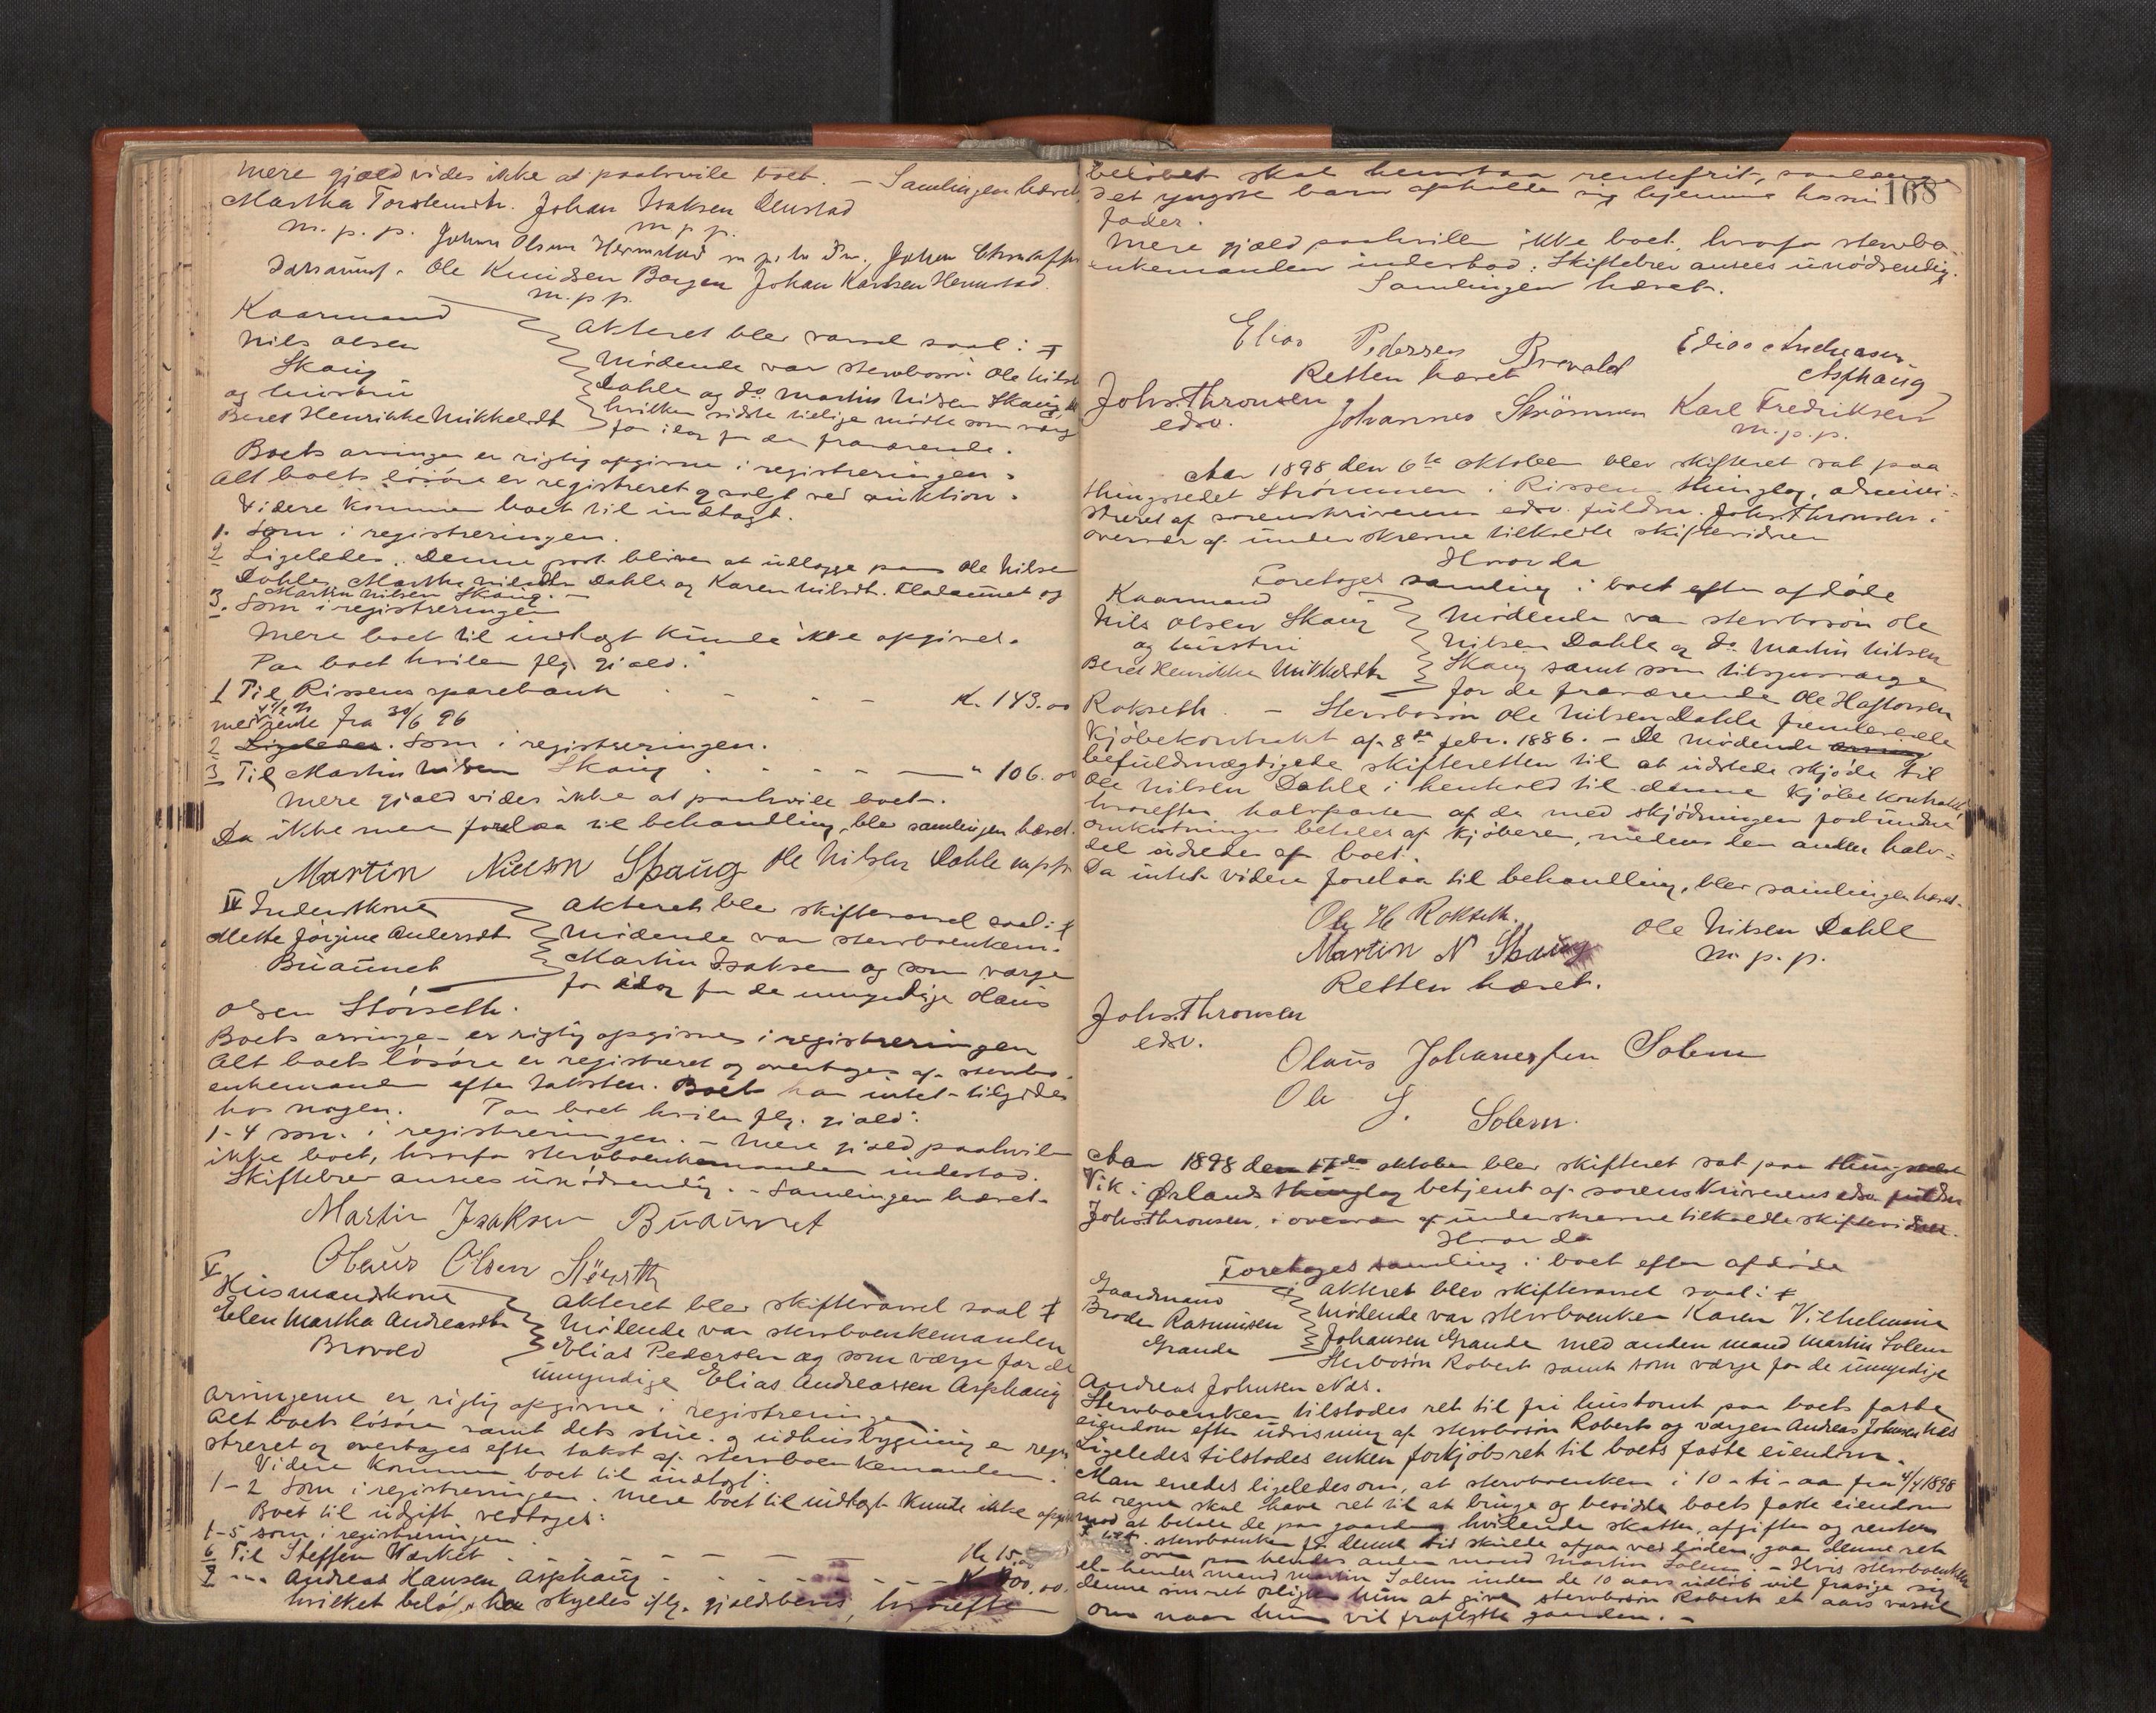 mere gjæld vides ikke at paahvile boet. – Samlingen hævet.
Martha Torstensdtr. Johan Isaksen Olmstad
m. p. p. m p p.
Johan Olsen Hermstad
Ole Knudsen Borgen Johan Karlsen Hermstad.
m. p p.
Kaarmand
Nils Olsen
Skaug
og hustru
Beret Henrikke Mikkelsdt
Akteret blev varsel saal:
Mødende var stervbosøn Ole Nilsen
Dahle og do. Martin Nilsen Skaug,
hvilken sidste tillige mødte som værge
for idag for den fraværende.
Boets arvinger er rigtig opgivne i registreringen.
Alt boets løsøre er registreret og solgt ved auktion.
Videre kommer boet til indtægt.
1. Som i registreringen.
2 Ligeledes. Denne post bliver at udlægge paa Ole Nilsen
Dahle, Martha Nilsdtr Dahle og Karen Nilsdt. Fladaunet og
Martin Nilsen Skaug. –
3. Som i registreringen
Mere boet til indtægt kunde ikke opgives.
Paa boet hviler flg. gjæld:
1 Til Rissens sparebank - - - K. 143.00
med rente fra 30/6 96
2 Ligeledes. Som i registreringen.
3 Til Martin Nilsen Skaug - - - - " 106.00
Mere gjæld vides ikke at paahvile boet.
Da ikke mere forelaa til behandling, blev samlingen hævet.
Martin Nielsn Skaug Ole Nilsen Dahle m p p
IV Inderstkone
Mette Jørgine Andersdt
Buaunet
Akteret blev skiftevarsel saal:
Mødende var stervboenkem.
Martin Isaksen og som værge
for idag for de umyndige Olaus
Olsen Størseth.
Boets arvinger er rigtig opgivne i registreringen
Alt boets løsøre er registreret og overtages af stervbo-
enkemanden efter taksten. Boet har intet tilgode
hos nogen. Paa boet hviler flg. gjæld:
1-4 som i registreringen. – Mere gjæld paahviler
ikke boet, hvorfor stervboenkemanden indestod.
Skiftebrev ansees unødvendig. – Samlingen hævet.
Martin Isaksen Buaunet
Olaus Olsen Størseth
V
Husmandskone
Elen Martha Andreasdtr
Brovold
Akteret blev skiftevarsel saal
Mødende var stervboenkemanden
Elias Pedersen og som værge for de
umyndige Elias Andreassen Asphaug
Arvingerne er rigtig opgivne i registreringen
Alt boets løsøre samt dets stue- og udhusbygning er regi-
streret og overtages efter takst af stervboenkemanden.
Videre kommer boet til indtægt:
1-2 Som i registreringen. Mere boet til indtægt kunde ikke opgives
Boet til udgift vedtages:
1-5 som i registreringen
6 Til Steffen Værket - - - - Kr 15.00
7 " Andreas Hansen Asphaug - - - - - K 200.00.
hvilket beløb han skyldes iflg. gjældsbevis, hvorefter
168
beløbet skal henstaa rentefrit, saalænge
det yngste barn opholder sig hjemme hos sin
fader.
Mere gjæld paahviler ikke boet, hvorfor stervbo-
enkemanden indestod. Skiftebrev ansees unødvendig.
Samlingen hævet.
Elias Pedersen Brovald Elias Andreasen
Asphaug
Retten hævet
Johs. Thronsen
edsv.
Johannes Strømmen Karl Fredriksen
m. p. p.
Aar 1898 den 6te oktober blev skifteret sat paa
thingstedet Strømmen i Rissens thinglag, admini-
streret af sorenskriverens edsv. fuldm. Johs. Thronsen i
overvær af underskrevne tilkaldte skiftevidner
Hvorda
Foretoges samling i boet efter afdøde
Kaarmand
Nils Olsen Skaug
og hustru
Beret Henrikke Mikkelsdtr
Mødende var stervbosøn Ole
Nilsen Dahle og do. Martin Nilsen
Skaug samt som tilsynsværge
for de fraværende Ole Haftorsen
Rokseth. – Stervbosøn Ole Nilsen Dahle fremlevede
Kjøbekontrakt af 8de febr. 1886. – De mødende
befuldmægtigede skifteretten til at udstede skjøde til
Ole Nilsen Dahle i henhold til denne kjøbekontrakt,
hvorefter halvparten af de med skjødningen forbundne
omkostninger betales af kjøberen, medens den anden halv-
del udredes af boet.
Da intet videre forelaa til behandling, blev samlingen hævet.
Ole H. Rokseth. Ole Nilsen Dahle
Martin N Skaug m. p. p.
Retten hævet.
Johs. Thronsen
edsv.
Olaus Johanessen Solem
Ole J. Solem.
Aar 1898 den 17de oktober blev skifteret sat paa thingstedet
Vik i Ørlands thinglag betjent af sorenskriverens edsv. fuldm
Johs. Thronsen, i overvær af underskrevne tilkaldte skiftevidner.
Hvorda
Foretoges samling i boet efter afdøde
Gaardmand
Broder Rasmussen
Grande
Akteret blev skiftevarsel saal:
Mødende var stervboenken Karen Vilhelmine
Johansen Grande med anden mand Martin Solem
Stervbosøn Robert samt som værge for de umyndige
Andreas Johnsen Næs.
Stervboenken tilstodes ret til fri hustomt paa boets faste
eiendom efter udvisning af stervbosøn Robert og værgen Andreas Johnsen Næs
Ligeledes tilstodes enken forkjøbsret til boets faste eiendom.
Man enedes ligeledes om, at stervboenken i 10 - ti - aar fra 4/4 1898
at regne skal have ret til at bruge og besidde boets faste eiendom
mod at betale de paa gaarden hvilende skatter, afgifter og renter
stervboenken før denne tid skulde afgaa ved døden, gaar denne ret
over paa hendes anden mand Martin Solem. – Hvis stervboenken
el. hendes mand Martin Solem inden de 10 aars udløb vil frasige sig
denne sin ret pligter hun at give stervbosøn Robert et aars varsel
om naar hun vil fraflytte gaarden. –